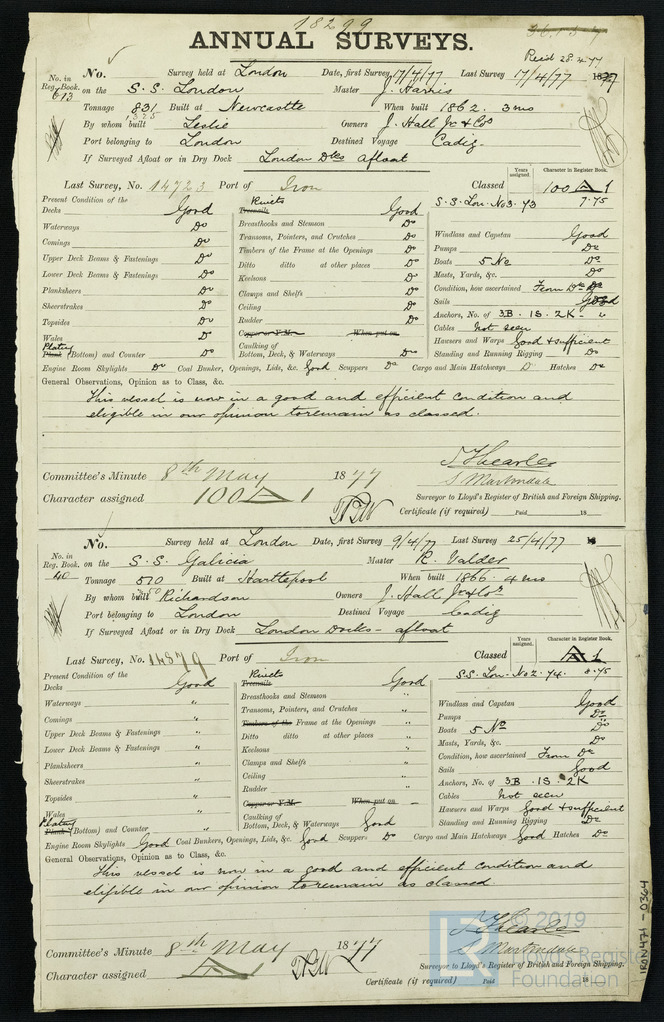 18299
ANNUAL SURVEYS.
Recd 28.4.77
No. in Reg. Book. 613
No. Survey held at London Date, first Survey 17/4/77 Last Survey 17/4/77 1877
on the S.S. London Master J. Harris
Tonnage 831 Built at Newcastle When built 1862. 3 mo
By whom built Leslie Owners J. Hall Jr & Co
Port belonging to London Destined Voyage Cadiz.
If Surveyed Afloat or in Dry Dock London Dks afloat
Last Survey, No. 14723 Port of Iron Classed Years assigned. Character in Register Book. 100 A 1
S.S. Lon. No3. 73 7.75
Present Condition of the
Decks Good
Waterways Do
Comings Do
Upper Deck Beams & Fastenings Do
Lower Deck Beams & Fastenings Do
Planksheers Do
Sheerstrakes Do
Topsides Do
Wales Do
Plating
Plank (Bottom) and Counter Do
Rivets
Treenails Good
Breasthooks and Stemson Do
Transoms, Pointers, and Crutches Do
Timbers of the Frame at the Openings Do
Ditto ditto at other places Do
Keelsons Do
Clamps and Shelfs Do
Ceiling Do
Rudder Do
Copper or Y.M. When put on
Caulking of Bottom, Deck, & Waterways Do
Windlass and Capstan Good
Pumps Do
Boats 5 No Do
Masts, Yards, &c. Do
Condition, how ascertained From Dk
Sails Good
Anchors, No. of 3B. 1S. 2K
Cables Not seen
Hawsers and Warps Good & sufficient
Standing and Running Rigging Do
Engine Room Skylights Do Coal Bunker, Openings, Lids, &c. Good Scuppers Do Cargo and Main Hatchways D Hatches Do
General Observations, Opinion as to Class, &c.
This vessel is now in a good and efficient condition and
eligible in our opinion to remain as classed.
Committee's Minute 8th May 1877
Character assigned 100 A 1
S. Martindale
Surveyor to Lloyd's Register of British and Foreign Shipping.
Certificate (if required) Paid 18
No. in Reg. Book. 40
No. Survey held at London Date, first Survey 9/4/77 Last Survey 25/4/77 18
on the S.S. Galicia Master R. Valder
Tonnage 570 Built at Hartlepool When built 1866. 4 mo
By whom built Richardson Owners J. Hall Jr & Co
Port belonging to London Destined Voyage Cadiz
If Surveyed Afloat or in Dry Dock London Docks - afloat
Last Survey, No. 14879 Port of Iron Classed Years assigned. Character in Register Book. A 1
S.S. Lon. No2. 74. 8.75
Present Condition of the
Decks Good
Waterways "
Comings "
Upper Deck Beams & Fastenings "
Lower Deck Beams & Fastenings "
Planksheers "
Sheerstrakes "
Topsides "
Wales
Plating
Plank (Bottom) and Counter "
Rivets
Treenails Good
Breasthooks and Stemson "
Transoms, Pointers, and Crutches "
Timbers of the Frame at the Openings "
Ditto ditto at other places "
Keelsons "
Clamps and Shelfs "
Ceiling "
Rudder "
Copper or Y.M. When put on -
Caulking of Bottom, Deck, & Waterways Good
Windlass and Capstan Good
Pumps Do
Boats 5 No Do
Masts, Yards, &c. Do
Condition, how ascertained From Dk
Sails Good
Anchors, No. of 3B. 1S. 2K
Cables Not seen
Hawsers and Warps Good & sufficient
Standing and Running Rigging Do
Engine Room Skylights Good Coal Bunkers, Openings, Lids, &c. Good Scuppers Do Cargo and Main Hatchways Good Hatches Do
General Observations, Opinion as to Class, &c.
This vessel is now in a good and efficient condition and
eligible in our opinion to remain as classed
Committee's Minute 8th May 1877
Character assigned A 1
S. Martindale
Surveyor to Lloyd's Register of British and Foreign Shipping.
Certificate (if required) Paid 18
IRON471-0364
LR © 2019
Lloyd's Register
Foundation